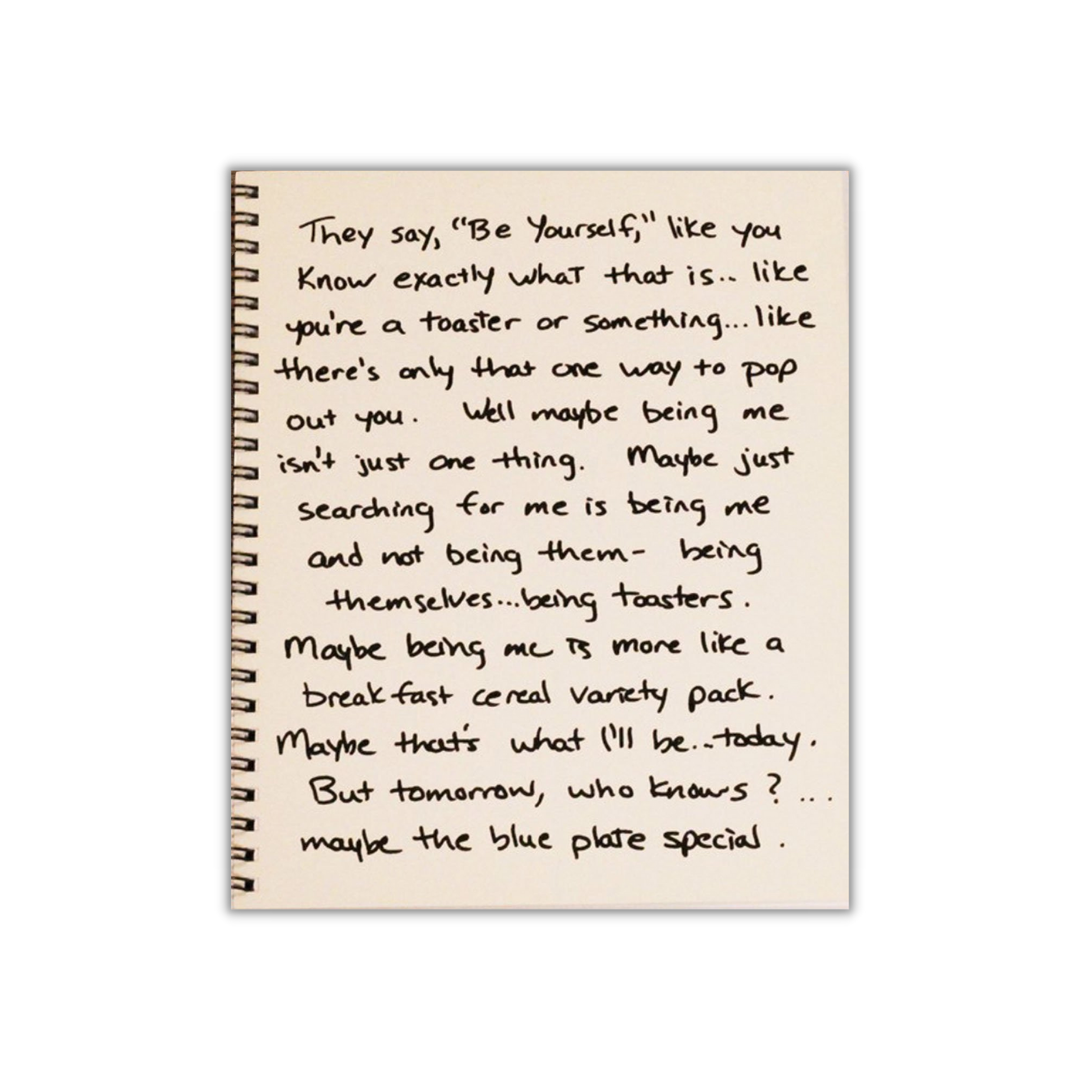 They say, "Be Yourself," like you
know exactly what that is.. like
you're a toaster or something... like
there's only that one way to pop
out you. Well maybe being me
isn't just one thing. Maybe just
searching for me is being me
and not being them- being
themselves...being toasters.
Maybe being me is more like a
breakfast cereal variety pack.
Maybe that's what I'll be...today.
But tomorrow, who knows? ...
maybe the blue plate special.